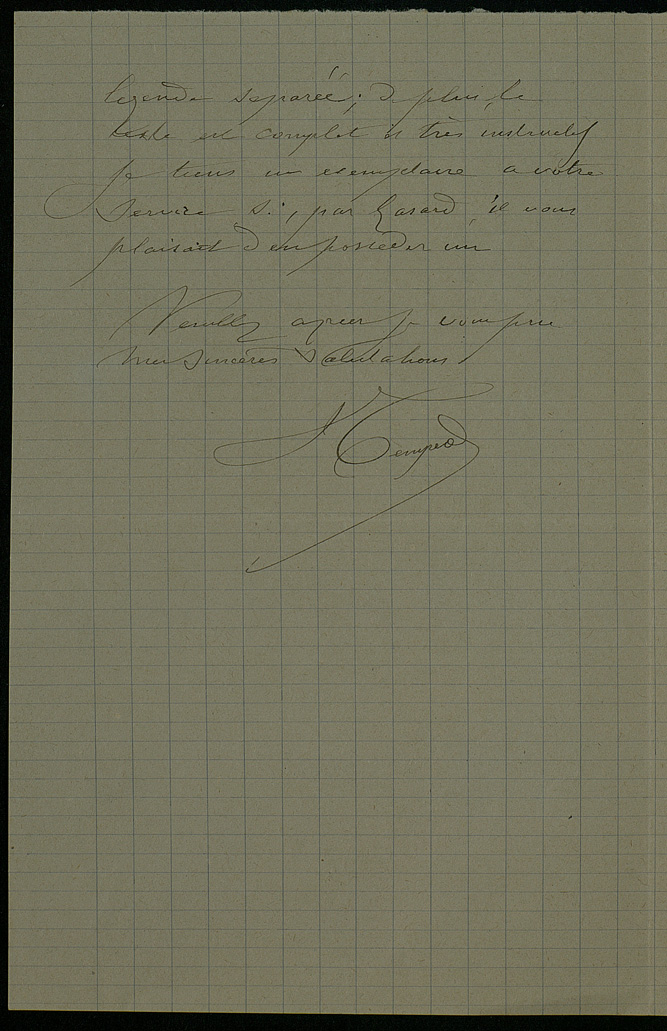 légende séparée ; de plus, le
texte est complet et très instructif
Je tiens un exemplaire a votre
service si, par hasard, il vous
plaisait d'en posséder un
Veuillez agréer je vous prie
mes sincères salutations